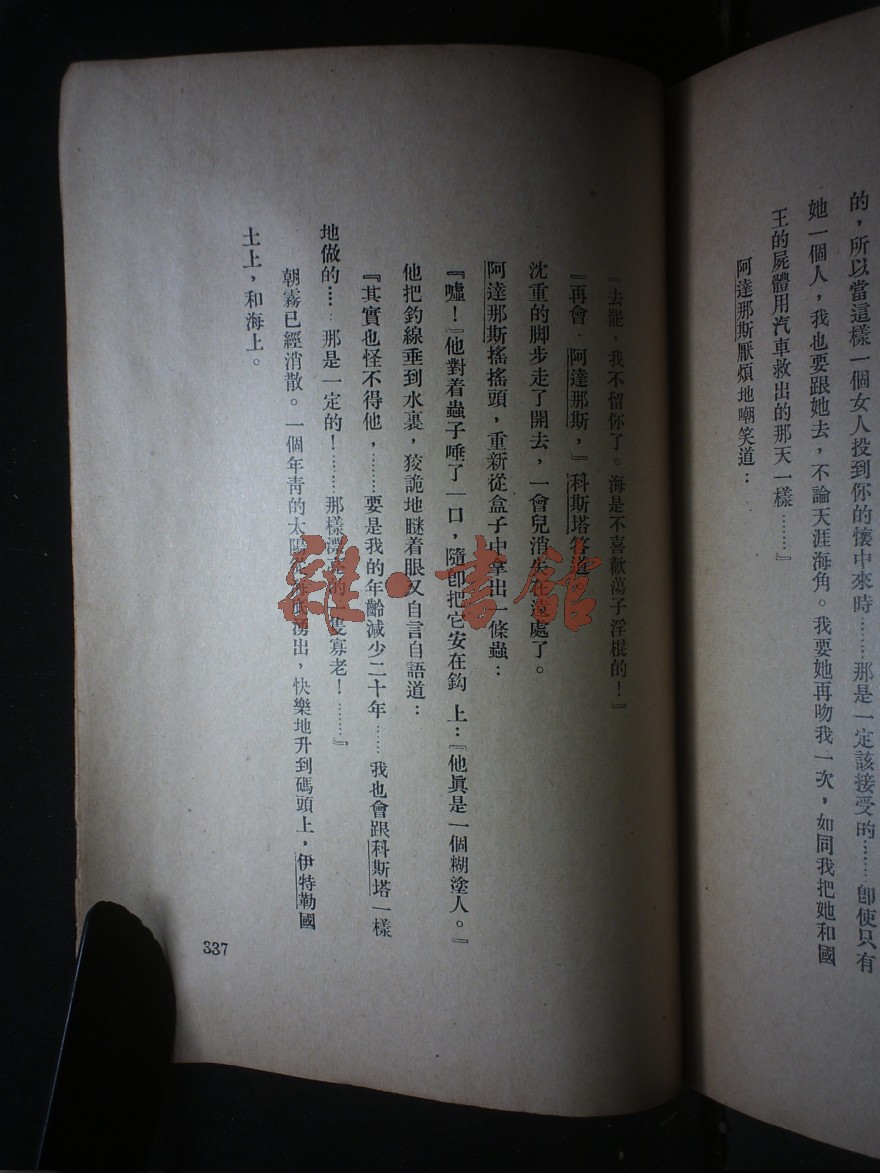 的，所以當這樣一個女人投到你的懷中來時………那是一定該接受的………卽使只有
她一個人，我也要跟她去，不論天涯海角。我要她再吻我一次，如同我把她和國
王的屍體用汽車救出的那天一樣………』
阿達那斯厭煩地嘲笑道：
『去罷，我不留你了。海是不喜歡蕩子淫棍的！』
『再會．阿達那斯，』科斯塔答道
沈重的脚步走了開去，一會兒消失在遠處了。
阿達那斯搖搖頭，重新從盒子中拿出一條蟲：
『噓！』他對着蟲子唾了一口，隨卽把它安在鈎上：『他眞是一個糊塗人。』
他把釣線垂到水裏，狡詭地瞇着眼又自言自語道：
『其實也怪不得他，………要是我的年齡減少二十年……我也會跟科斯塔一樣
地做的……那是一定的！……那樣漂亮的一隻寡老！………』
朝霧已經消散。一個年靑的太陽從海底湧出，快樂地升到碼頭上，伊特勒國
土上，和海上。
337
雜·書館